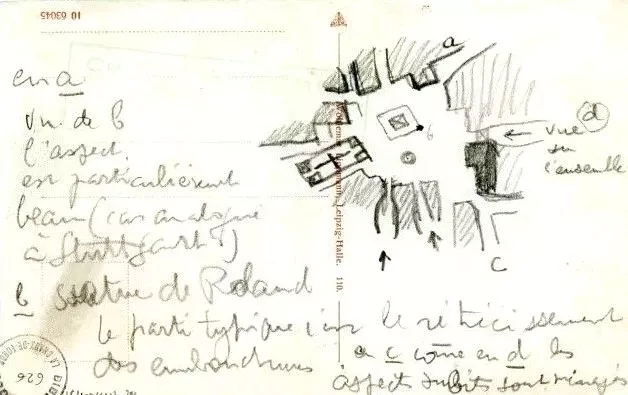 10 63045
en a
a
Vu de b
l'aspect
est particulièrement
beau (cas analogue
à Stuttgart)
b
d
vue
sur
l'ensemble
Leipzig-Halle. 110.
c
b statue de Roland
le parti typique c'est le rétrécissement
des embouchures
en c come en d les
aspects subits sont ménagés
BIB
626